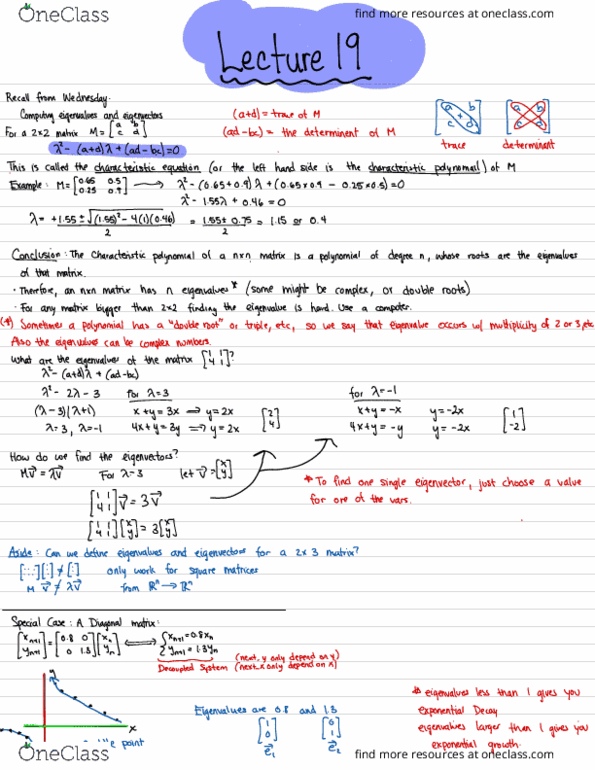 OneClass
find more resources at oneclass.com
Lecture 19
Recall from Wednesday:
Computing eigenvalues and eigenvectors
For a 2x2 matrix M = [a b; c d]
(a+d) = trace of M
(ad-bc) = the determinent of M
a b c d + trace
a b c d determinent
λ² - (a+d)λ + (ad-bc) = 0
This is called the characteristic equation (or the left hand side is the characteristic polynomial) of M
Example: M = [0.65 0.5; 0.25 0.9] → λ² - (0.65+0.9)λ + (0.65×0.9 - 0.25×0.5) = 0
λ² - 1.55λ + 0.46 = 0
λ = +1.55 ± √(1.55)² - 4(1)(0.46) / 2 = 1.55 ± 0.75 / 2 = 1.15 or 0.4
Conclusion: The characteristic polynomial of a n×n matrix is a polynomial of degree n, whose roots are the eigenvalues
of that matrix.
· Therefore, an n×n matrix has n eigenvalues* (some might be complex, or double roots)
· For any matrix bigger than 2×2 finding the eigenvalue is hard. Use a computer.
(*) Sometimes a polynomial has a "double root" or triple, etc, so we say that eigenvalue occurs w/ multiplicity of 2 or 3, etc
Also the eigenvalues can be complex numbers.
What are the eigenvalues of the matrix [1 1; 4 1]?
λ² - (a+d)λ + (ad-bc)
λ² - 2λ - 3 for λ=3 for λ=-1
(λ-3)(λ+1) x+y = 3x → y=2x [2; 4] x+y = -x y=-2x [1; -2]
λ=3, λ=-1 4x+y = 3y → y=2x 4x+y = -y y=-2x
How do we find the eigenvectors?
Mv = λv For λ=3 let v = [x; y]
* To find one single eigenvector, just choose a value
for one of the vars.
[1 1; 4 1] v = 3v
[1 1; 4 1][x; y] = 3[x; y]
Aside: Can we define eigenvalues and eigenvectors for a 2x3 matrix?
only work for square matrices
M v ≠ λv from ℝⁿ → ℝⁿ
Special Case: A Diagonal matrix:
[xn+1; yn+1] = [0.8 0; 0 1.3][xn; yn] ⟺ { xn+1 = 0.8xn
yn+1 = 1.3yn
Decoupled System (next y only depend on y)
(next x only depend on x)
y
x
point
Eigenvalues are 0.8 and 1.3
[1; 0] [0; 1]
e1 e2
* eigenvalues less than 1 gives you
exponential Decay
eigenvalues larger than 1 gives you
exponential growth.
OneClass
find more resources at oneclass.com